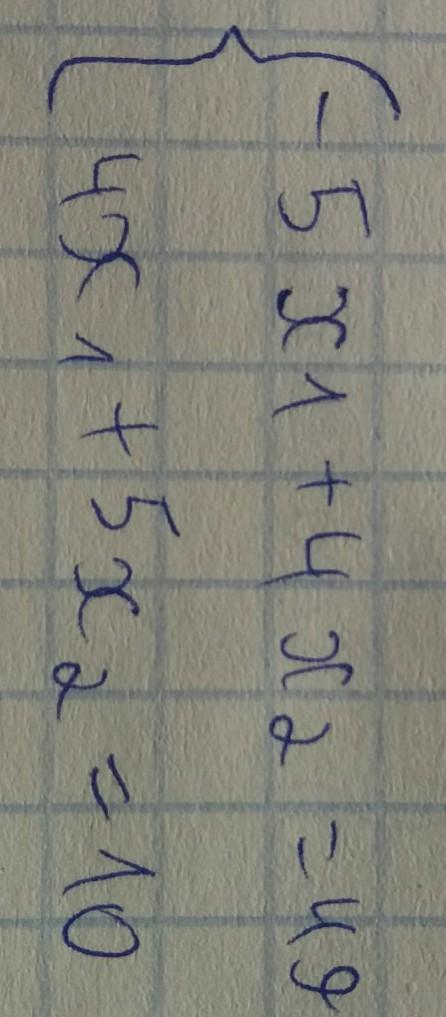 -5x1+4x2=49
4x1+5x2=10